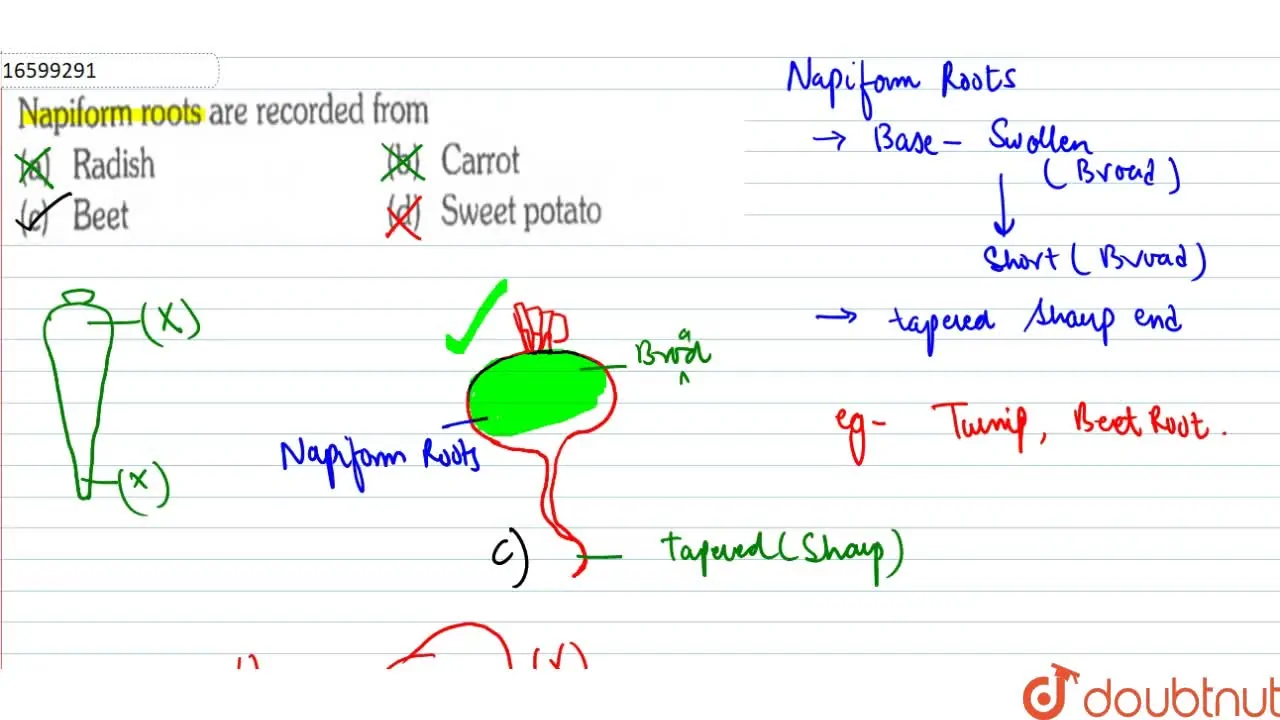 16599291
Napiform roots are recorded from
(a) Radish (b) Carrot
(c) Beet (d) Sweet potato
Napiform Roots
→ Base - Swollen
(Broad)
Short (Broad)
→ tapered sharp end
eg- Turnip, Beet Root.
(X)
(x)
Broad
Napiform Roots
c)
tapered (Sharp)
doubtnut